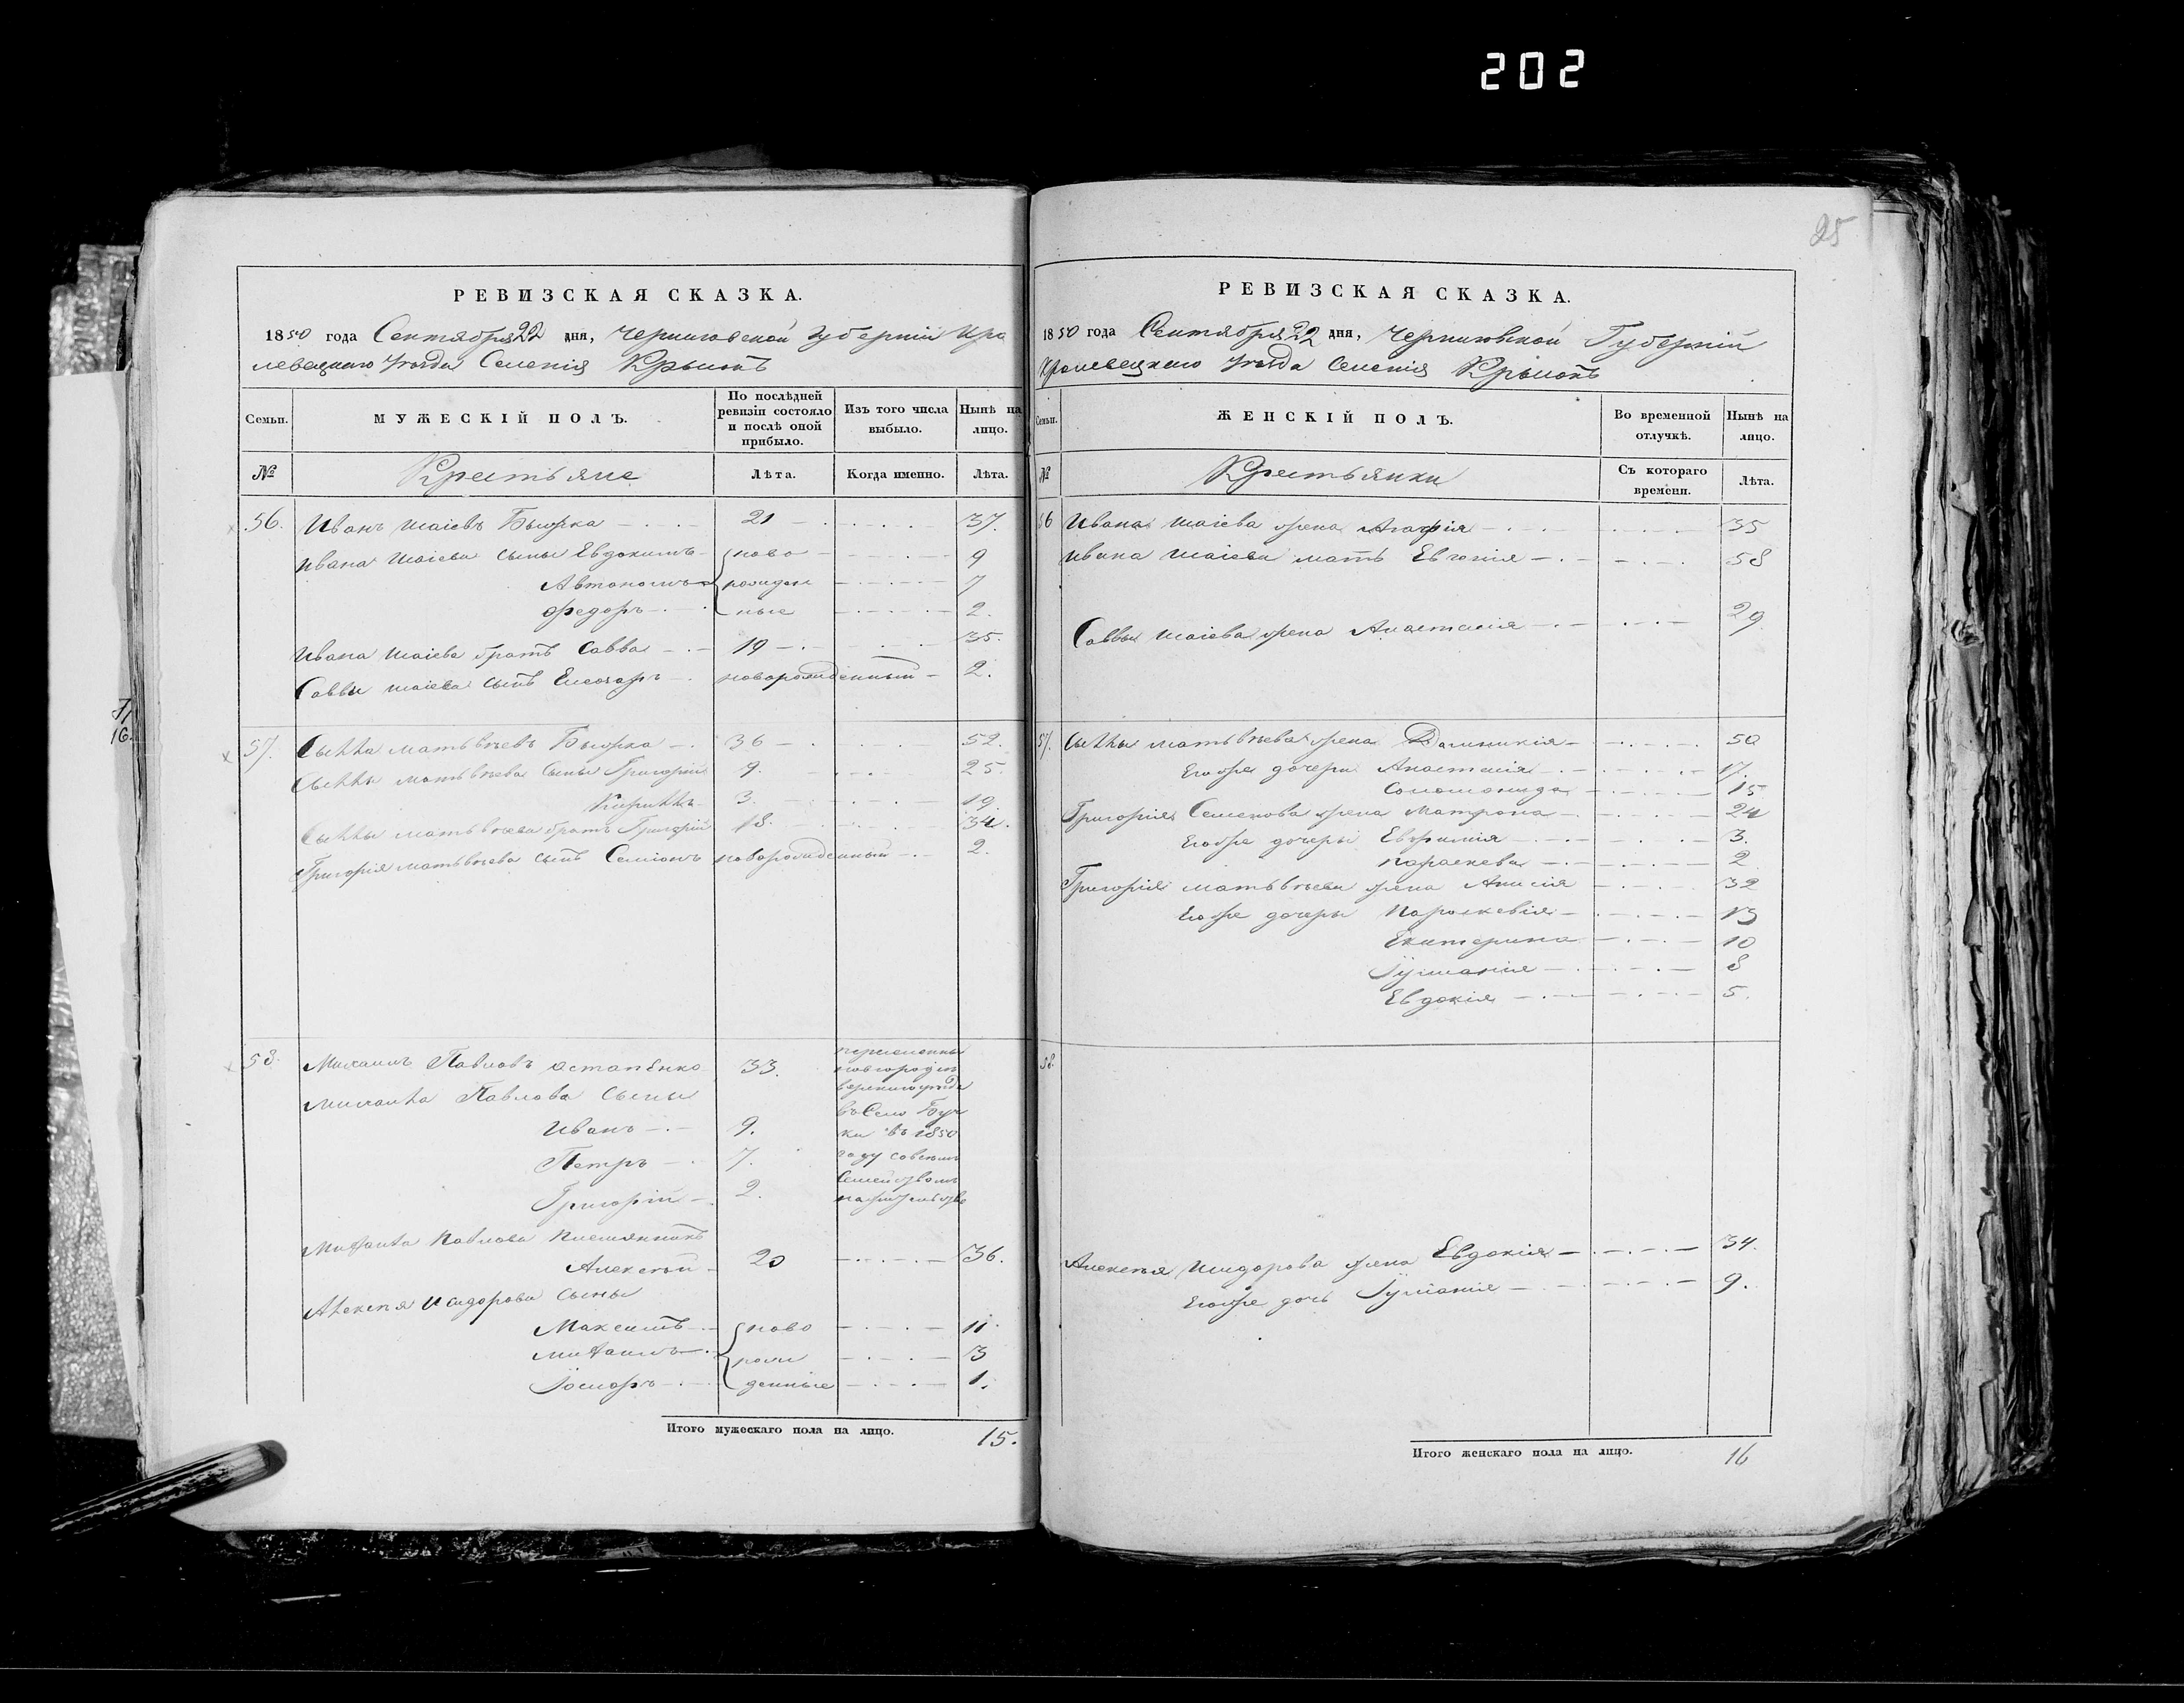 202
25
РЕВИЗСКАЯ СКАЗКА.
1850 года Сентября 22 дня, Черниговской Губернiи Кро
левецкаго Уезда Селенiя
Семьи. МУЖЕСКІЙ ПОЛЪ. По послѣдней ревизіи состояло и послѣ оной прибыло. Изъ того числа выбыло. Нынѣ на лицо.
№ Крестьяне Лѣта. Когда именно. Лѣта.
56. Иванъ 21 37.
Ивана сыны Евдокимъ ново 9
Автономъ рожден 7
Федоръ ные 2.
Ивана братъ Савва 19 35.
Саввы сынъ новорожденный 2.
57. Матвѣевъ 36 52.
Матвѣева сыны Григорiй 9. 25.
Кирилъ 3. 19.
Матвѣева братъ Григорiй 18. 34.
Григорiя Матвѣева сынъ Семіонъ новорожденный 2.
58. Михаилъ Павловъ Остапенко 33.
Михаила Павлова Сыны
Иванъ 9.
Петръ 7.
Григорій 2.
въ Село
ки въ 1850
году
Михаила Павлова племянникъ
Алексѣй 20 36.
Алексѣя Исидорова сыны
Максимъ ново 11.
Михаилъ рож 3
денные 1.
Итого мужескаго пола на лицо. 15.
71
16.
РЕВИЗСКАЯ СКАЗКА.
1850 года Сентября 22 дня, Черниговской Губернiй
Кролевецкаго Уезда Селенiя
Семьи. ЖЕНСКІЙ ПОЛЪ. Во временной отлучкѣ. Нынѣ на лицо.
№ Крестьянки Съ котораго времени. Лѣта.
56 Ивана жена Агафiя 35
Ивана мать Евгенiя 58
Саввы жена Анастасiя 29
57. Матвѣева жена 50
Егоже дочери Анастасiя 17.
Соломонида 15
Григорiя Семенова жена Матрона 24
Егоже дочери Евфимiя 3.
Параскева 2
Григорiя Матвѣева жена Анисiя 32
Егоже дочери Параскевiя 13
Екатерина 10
Іулiанiя 8
Евдокiя 5.
58.
Алексѣя Исидорова жена Евдокiя 34.
Егоже дочь Іулiанiя 9.
Итого женскаго пола на лицо. 16